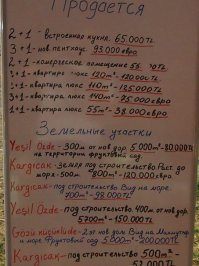 Продаётся
2+1 - встроенная кухня. 65.000TL
3+1 - нов. пентхаус. 93.000евро
2+1 - коммерческое помещение
3+1 - квартира люкс 120м²
3+1 - квартира люкс 110м² - 135.000TL
3+1 - квартира люкс 140м²
1+1 - квартира люкс 55м² - 38.000евро
Земельные участки
Yeşil Özde - 300м от нов. дор. 5.000м² - 80.000TL
на территории фруктовый сад
Kargıcak - Земля под строительство Рест. до
моря - 500м. 800м² - 120.000евро
Kargıcak - под строительство. Вид на море.
700м² - 98.000TL
Yeşil Özde - под строительство. 400м от нов. дор.
5700м² - 150.000TL
нов. дом Вид на
и море. Фруктовый сад 5.000м² - 200.000TL
Kargıcak - под строительство 500м²